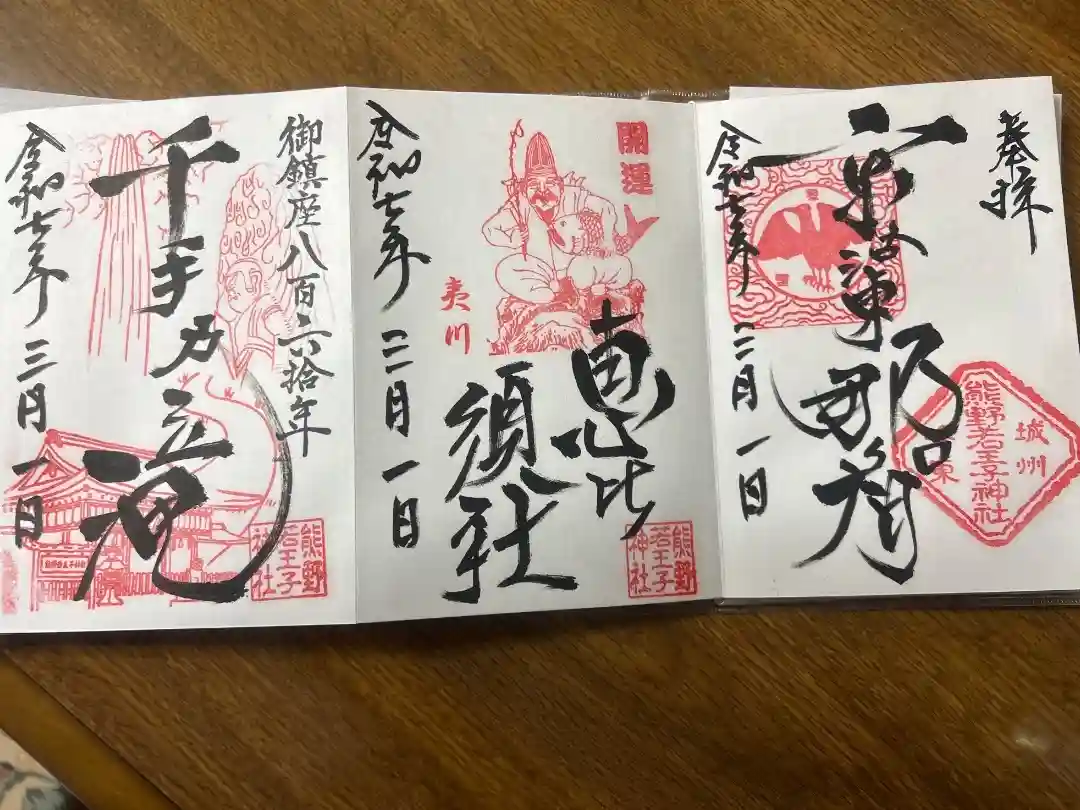 奉拝
京洛東
那智
城州
東
熊野若王子神社
令和七年三月一日
開運
恵比
須社
夷川
熊野
若王子
神社
令和七年三月一日
御鎮座八百六拾年
千手乃滝
熊野
若王子
神社
令和七年三月一日